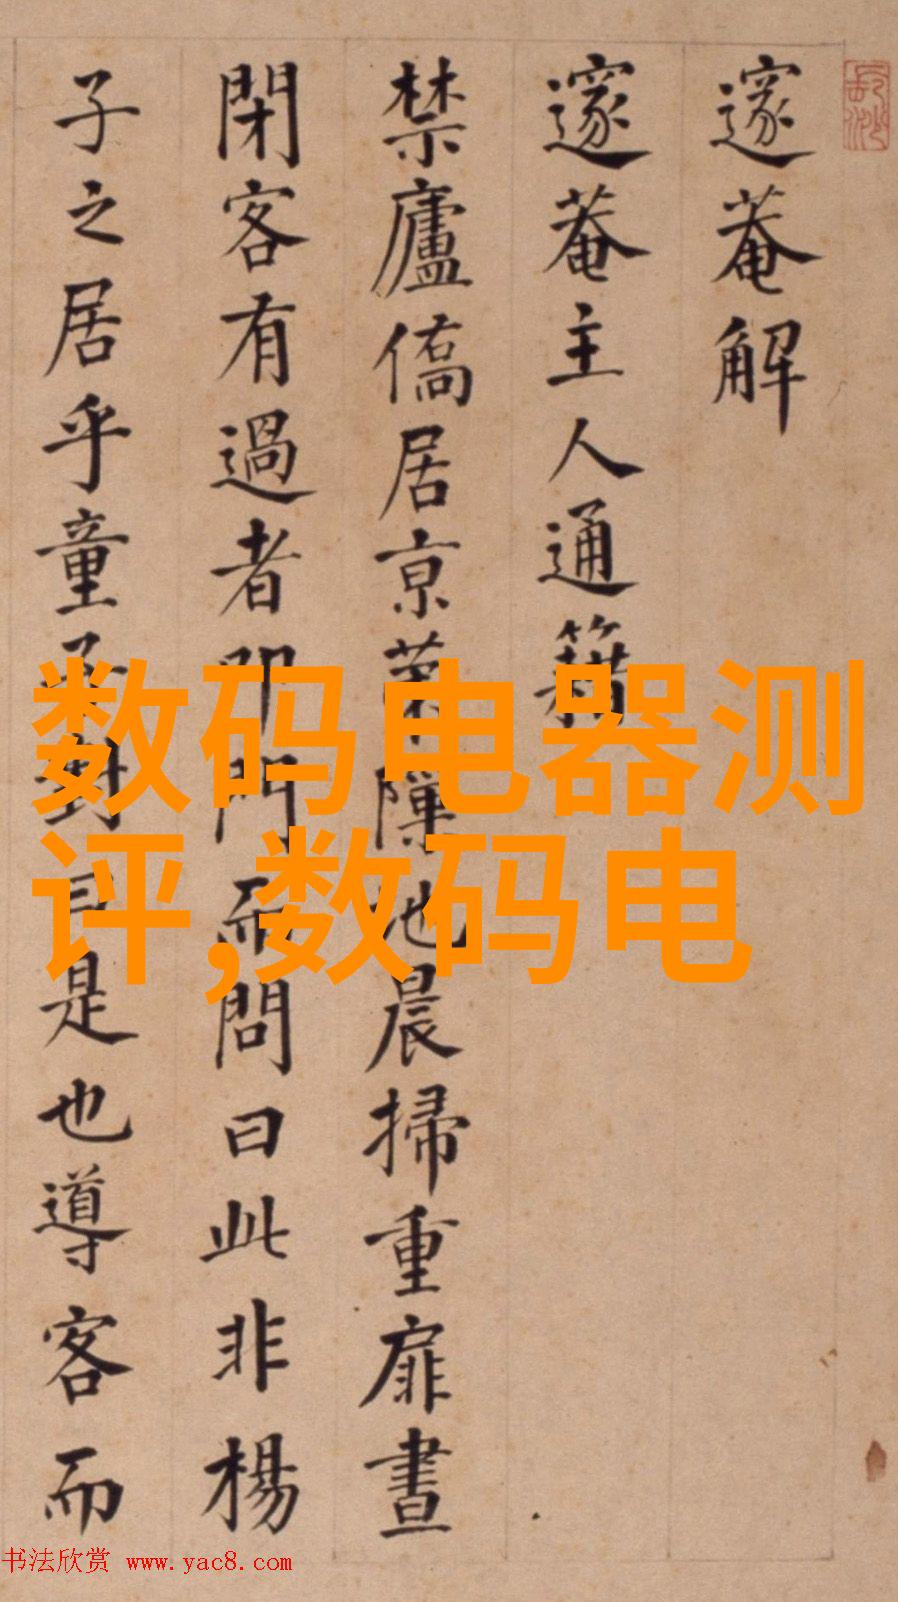 邃菴解
邃菴主人通籍
禁廬僑居京第隟地晨掃重扉晝
閉客有過者叩門而問曰此非楊
子之居乎童子對曰是也導客而
数码电器测
评,数码电
书法欣赏 www.yac8.com